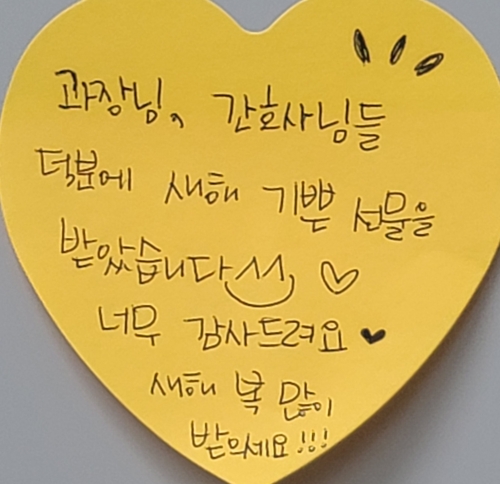 과장님, 간호사님들
덕분에 새해 기쁜 선물을
받았습니다^^ ♡
너무 감사드려요 ♥
새해 복 많이
받으세요!!!